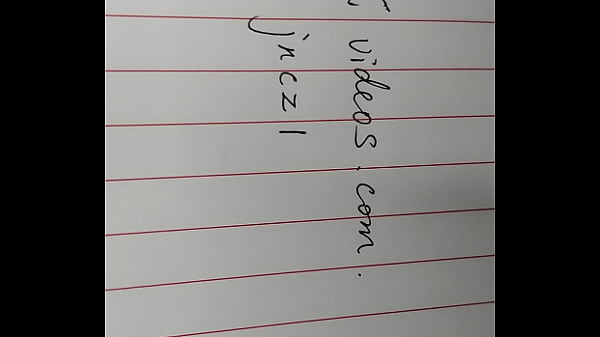 videos.com.
jnczl